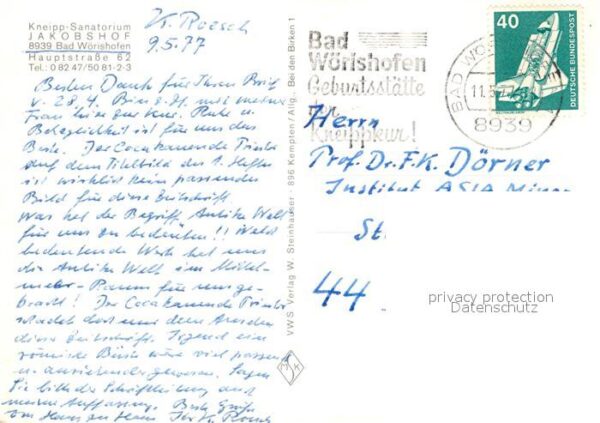 Kneipp-Sanatorium
JAKOBSHOF
8939 Bad Wörishofen
Hauptstraße 62
Tel.: 0 82 47/50 81-2-3
9.5.77
Besten Dank für Ihren Brief
v. 28.4. Bin z. Zt. mit meiner
Frau hier zur Kur. Ruhe u.
ist für uns das
Beste. Der Coca kauende
auf dem Titelbild des 1. Heftes
ist wirklich kein passendes
Bild für diese Zeitschrift.
Was hat der Begriff Antike Welt
für uns zu bedeuten!! Welch
bedeutende Werte hat uns
die Antike Welt im Mittel-
meer-Raum für uns ge-
bracht! Der Coca kauende
schadet dort und dem Ansehen
dieser Zeitschrift. Irgend eine
römische Büste wäre viel passender
u. gewesen. Sagen
Sie bitte der Schriftleitung auch
meine Auffassung. Beste Grüße
von Haus zu Haus Ihr K. Roesch
VWS Verlag W. Steinhauser · 896 Kempten / Allg., Bei den Birken 1
Bad
Wörishofen
Geburtsstätte
der
Kneippkur!
BAD WÖ
11.5.77
8939
40
DEUTSCHE BUNDESPOST
Herrn
Prof. Dr. F.K. Dörner
Institut ASIA Minor
St.
44
privacy protection
Datenschutz